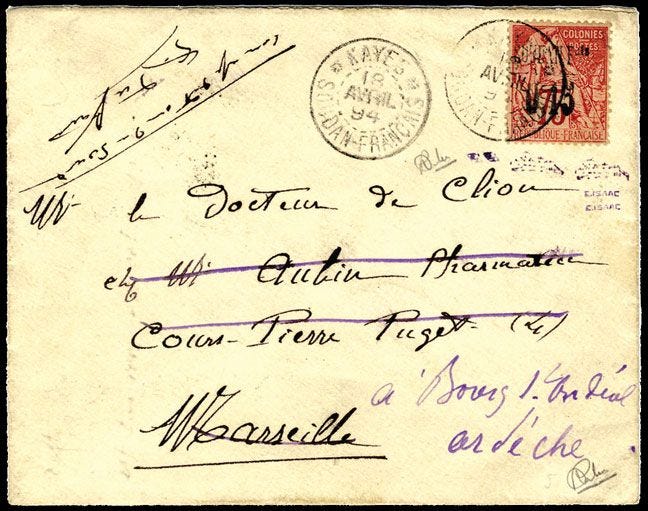 COLONIES
POSTES
0,15
RÉPUBLIQUE FRANÇAISE
KAYES
18
AVRIL
94
SOUDAN-FRANÇAIS
KAYES
18
AVRIL
94
SOUDAN-FRANÇAIS
E.ISAAC
E.ISAAC
Mr le Docteur de Clion
chez Mr Aubin Pharmacien
Cours Pierre Puget (4)
Marseille
à Bourg St Andéol
ardèche